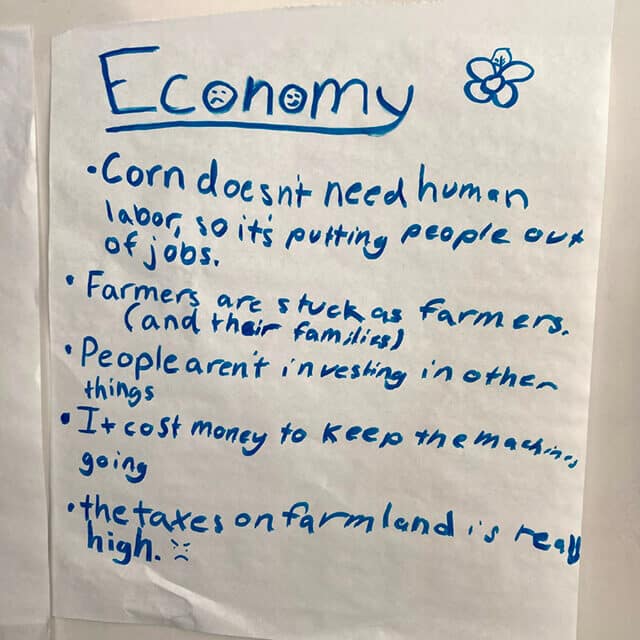 Economy
•Corn doesn't need human
labor, so it's putting people out
of jobs.
• Farmers are stuck as farmers.
(and their families)
•People aren't investing in other
things
•It cost money to keep the machines
going
•the taxes on farmland is really
high.